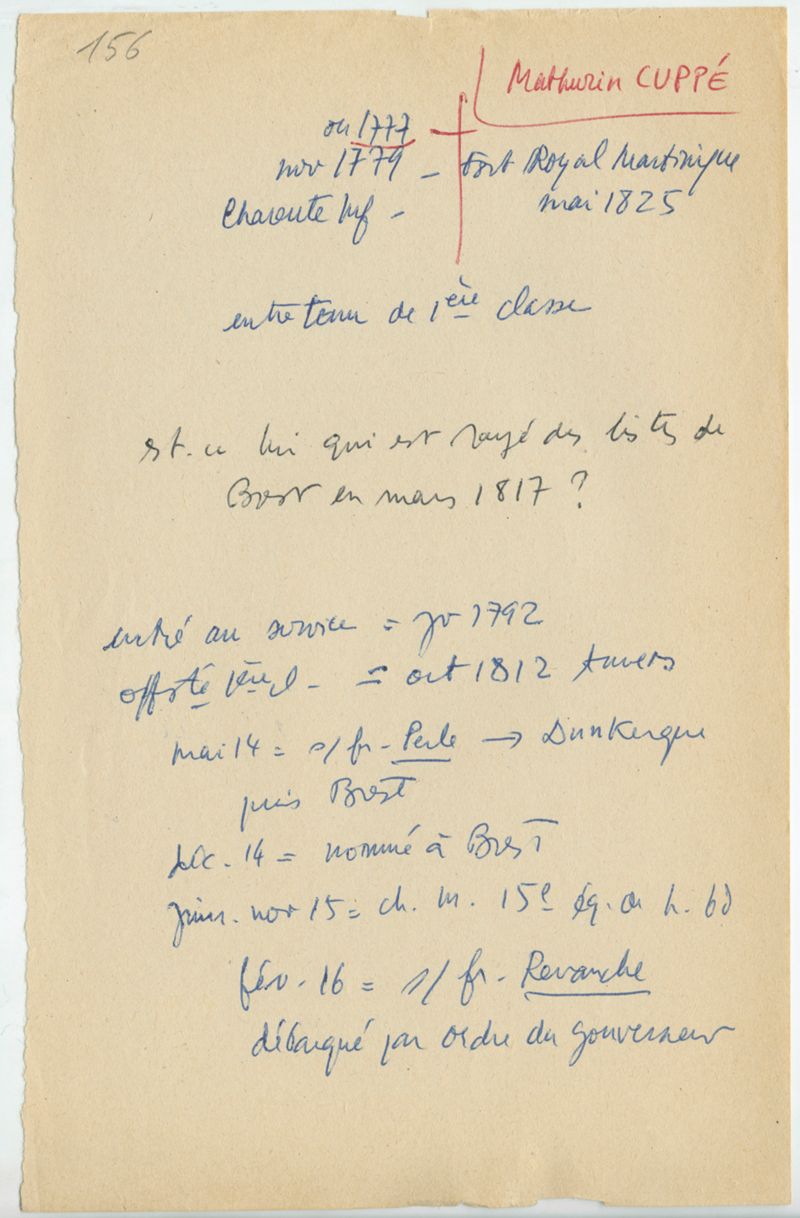 156
Mathurin CUPPÉ
ou 1777
nov 1779 - Fort Royal Martinique
Charente Inf - mai 1825
entretenu de 1ère classe
est-ce lui qui est rayé des listes de
Brest en mars 1817 ?
entré au service = jv 1792
offsté 1ère cl - = oct 1812 Anvers
mai 14 = s/ fr - Perle → Dunkerque
puis Brest
déc. 14 = nommé à Brest
juin - nov 15 = ch. m. 15e éq. ou h. bd
fév - 16 = s/ fr - Revanche
débarqué par ordre du gouverneur